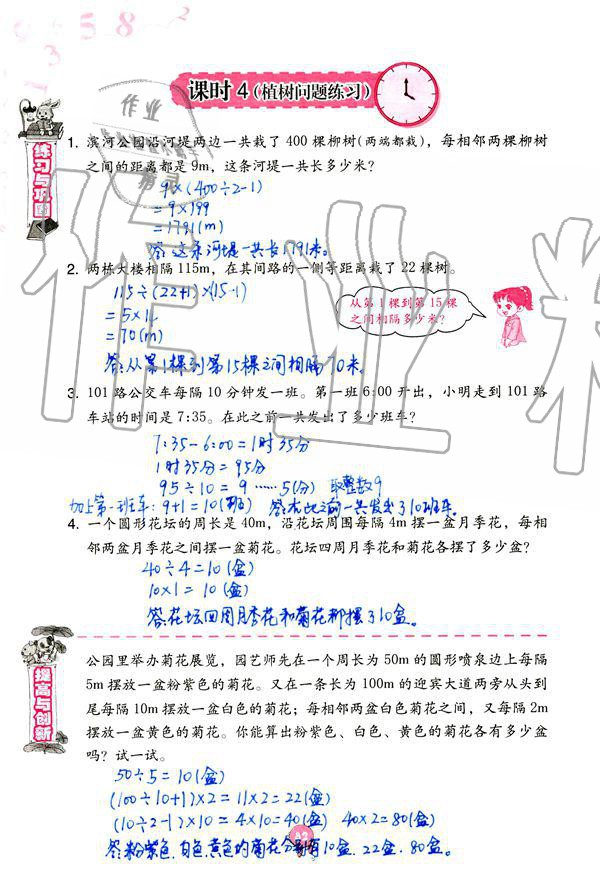 课时4(植树问题练习)
练习与巩固
1. 滨河公园沿河堤两边一共栽了 400 棵柳树(两端都栽)，每相邻两棵柳树
之间的距离都是 9m，这条河堤一共长多少米？
9×(400÷2-1)
=9×199
=1791(m)
答:这条河堤一共长1791米。
2. 两栋大楼相隔 115m，在其间路的一侧等距离栽了 22 棵树。
从第 1 棵到第 15 棵
之间相隔多少米？
115÷(22+1)×(15-1)
=5×14
=70(m)
答:从第1棵到第15棵之间相隔70米。
3. 101 路公交车每隔 10 分钟发一班。第一班 6:00 开出，小明走到 101 路
车站的时间是 7:35。在此之前一共发出了多少班车？
7:35-6:00=1时35分
1时35分=95分
95÷10=9……5(分) 取整数9
加上第一班车:9+1=10(班) 答:在此之前一共发出了10班车。
4. 一个圆形花坛的周长是 40m，沿花坛周围每隔 4m 摆一盆月季花，每相
邻两盆月季花之间摆一盆菊花。花坛四周月季花和菊花各摆了多少盆？
40÷4=10(盆)
10×1=10(盆)
答:花坛四周月季花和菊花都摆了10盆。
提高与创新
公园里举办菊花展览，园艺师先在一个周长为 50m 的圆形喷泉边上每隔
5m 摆放一盆粉紫色的菊花。又在一条长为 100m 的迎宾大道两旁从头到
尾每隔 10m 摆放一盆白色的菊花；每相邻两盆白色菊花之间，又每隔 2m
摆放一盆黄色的菊花。你能算出粉紫色、白色、黄色的菊花各有多少盆
吗？试一试。
50÷5=10(盆)
(100÷10+1)×2=11×2=22(盆)
(10÷2-1)×10=4×10=40(盆) 40×2=80(盆)
答:粉紫色、白色、黄色的菊花分别有10盆、22盆、80盆。
A2
作业
精灵
作业精